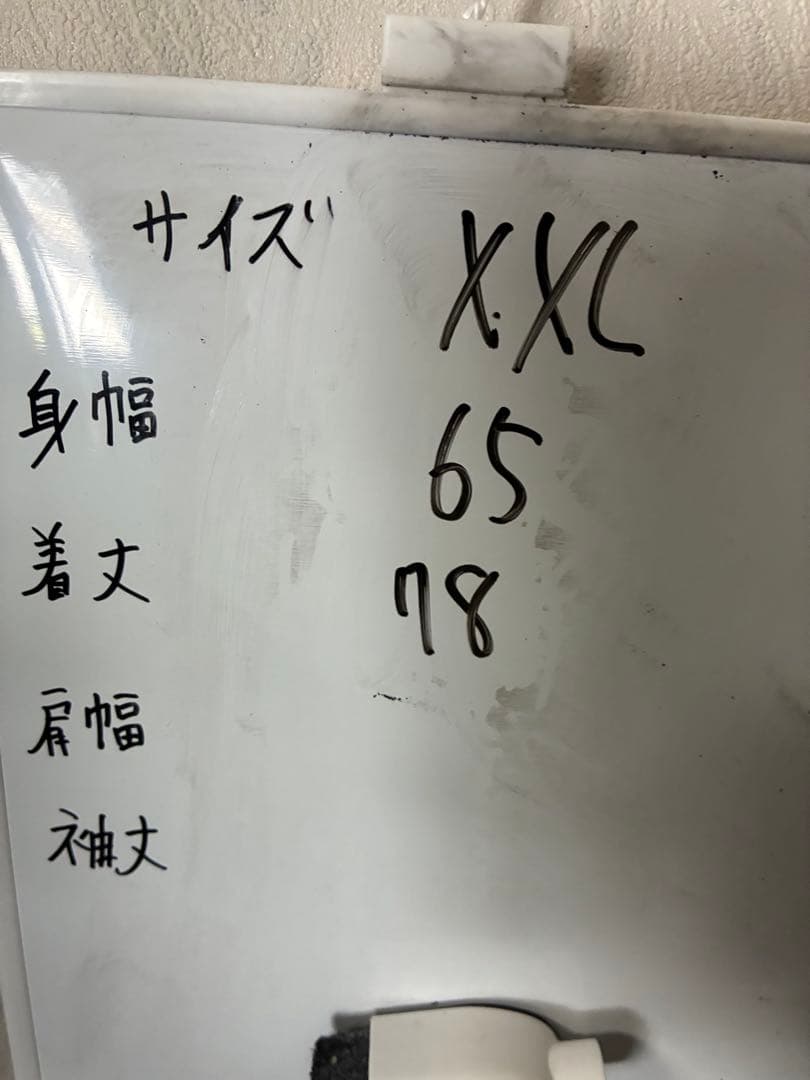 サイズ X.XL
身幅 65
着丈 78
肩幅
袖丈